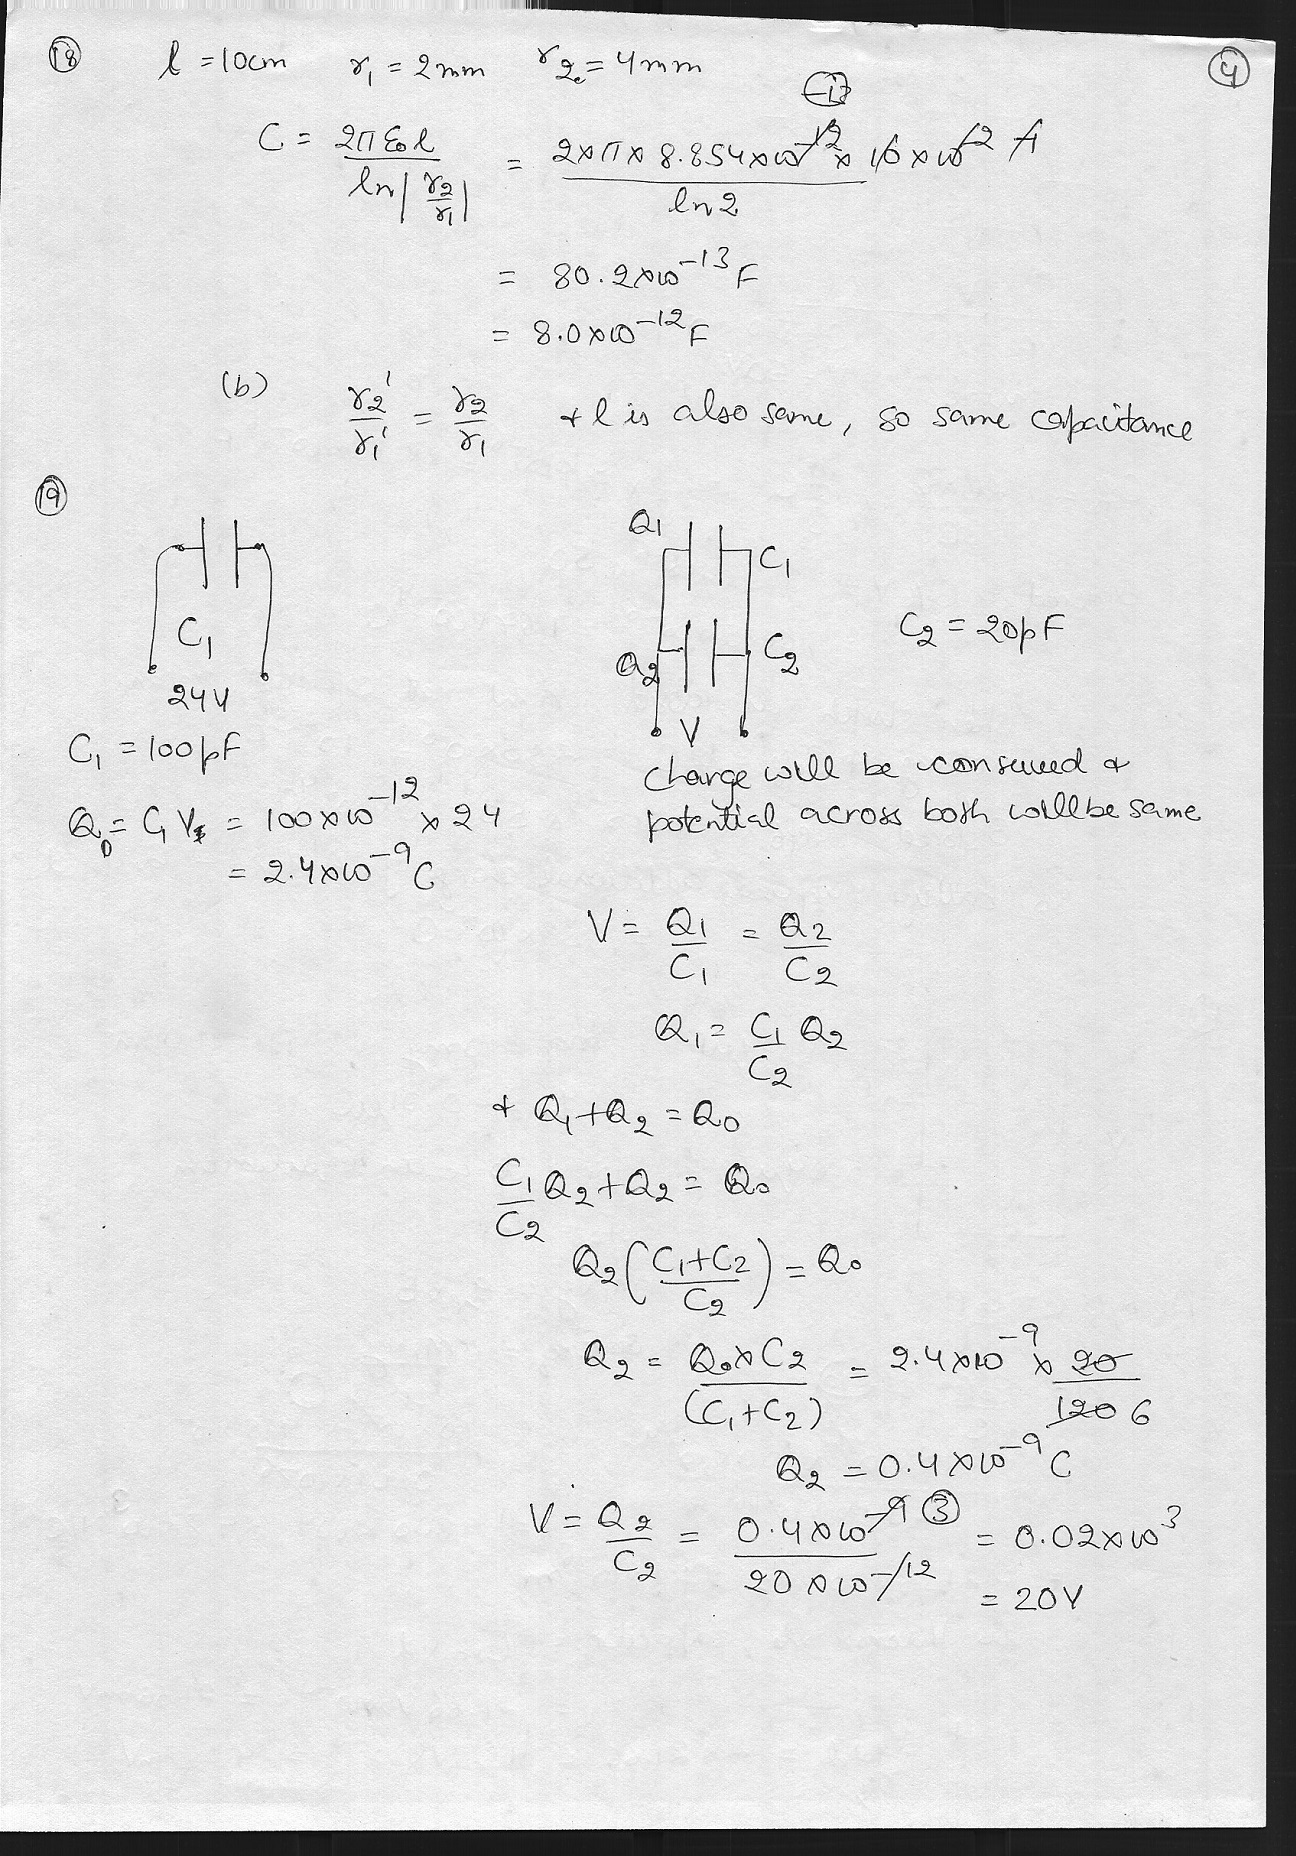 (18) l = 10cm r₁ = 2mm r₂ = 4mm
(4)
C = 2πε₀l / ln|r₂/r₁| = 2×π×8.854×10⁻¹²×10×10⁻² / ln2
= 80.2×10⁻¹³F
= 8.0×10⁻¹²F
(b) r₂'/r₁' = r₂/r₁ & l is also same, so same capacitance
(19)
C₁
24V
C₁ = 100pF
Q₀ = C₁V = 100×10⁻¹² × 24
= 2.4×10⁻⁹C
Q₁ C₁
Q₂ C₂
V
C₂ = 20pF
charge will be conserved &
potential across both will be same
V = Q₁/C₁ = Q₂/C₂
Q₁ = C₁/C₂ Q₂
& Q₁+Q₂ = Q₀
C₁/C₂ Q₂+Q₂ = Q₀
Q₂(C₁+C₂/C₂) = Q₀
Q₂ = Q₀×C₂/(C₁+C₂) = 2.4×10⁻⁹ × 20/120 6
Q₂ = 0.4×10⁻⁹C
V = Q₂/C₂ = 0.4×10⁻⁹ (3) / 20×10⁻¹² = 0.02×10³
= 20V